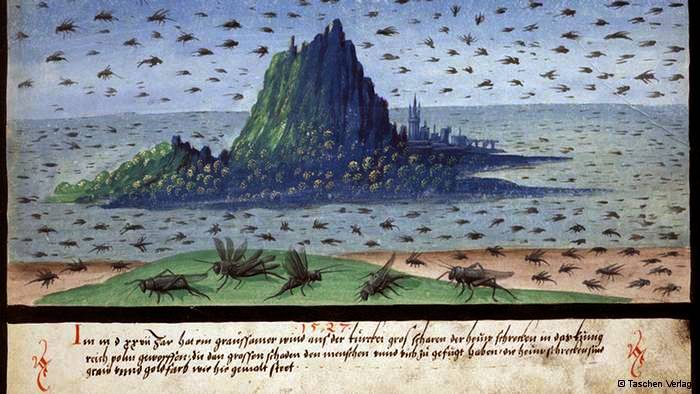 1527
Im m d xxvii Jar hat ein graussamer wind aus der türckei gros scharen der heuw schrecken in dar künig
reich poln geworffen die dan grossen schaden den menschen vnnd vich zu gefügt haben die heuw schrecken sind
graw vnnd goldfarb wie hie gemalt steet
© Taschen Verlag